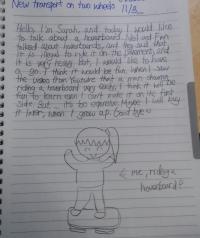 New transport on two wheels 11/9
Hello, I'm Sarah, and today I would like
to talk about a hoverboard. Ned and Finn
talked about hoverboards, and they said that
it is illegal to ride it on the pavement, and
it is very risky but, I would like to have
a go. I think it would be fun, when I saw
the video from Youtube that a man
riding a hoverboard very easily. I think it will be
fun to learn even I can't make it on the first
ride. But, it's too expensive. Maybe I will buy
it later, when I grow up. Good bye
me, riding a
hoverboard